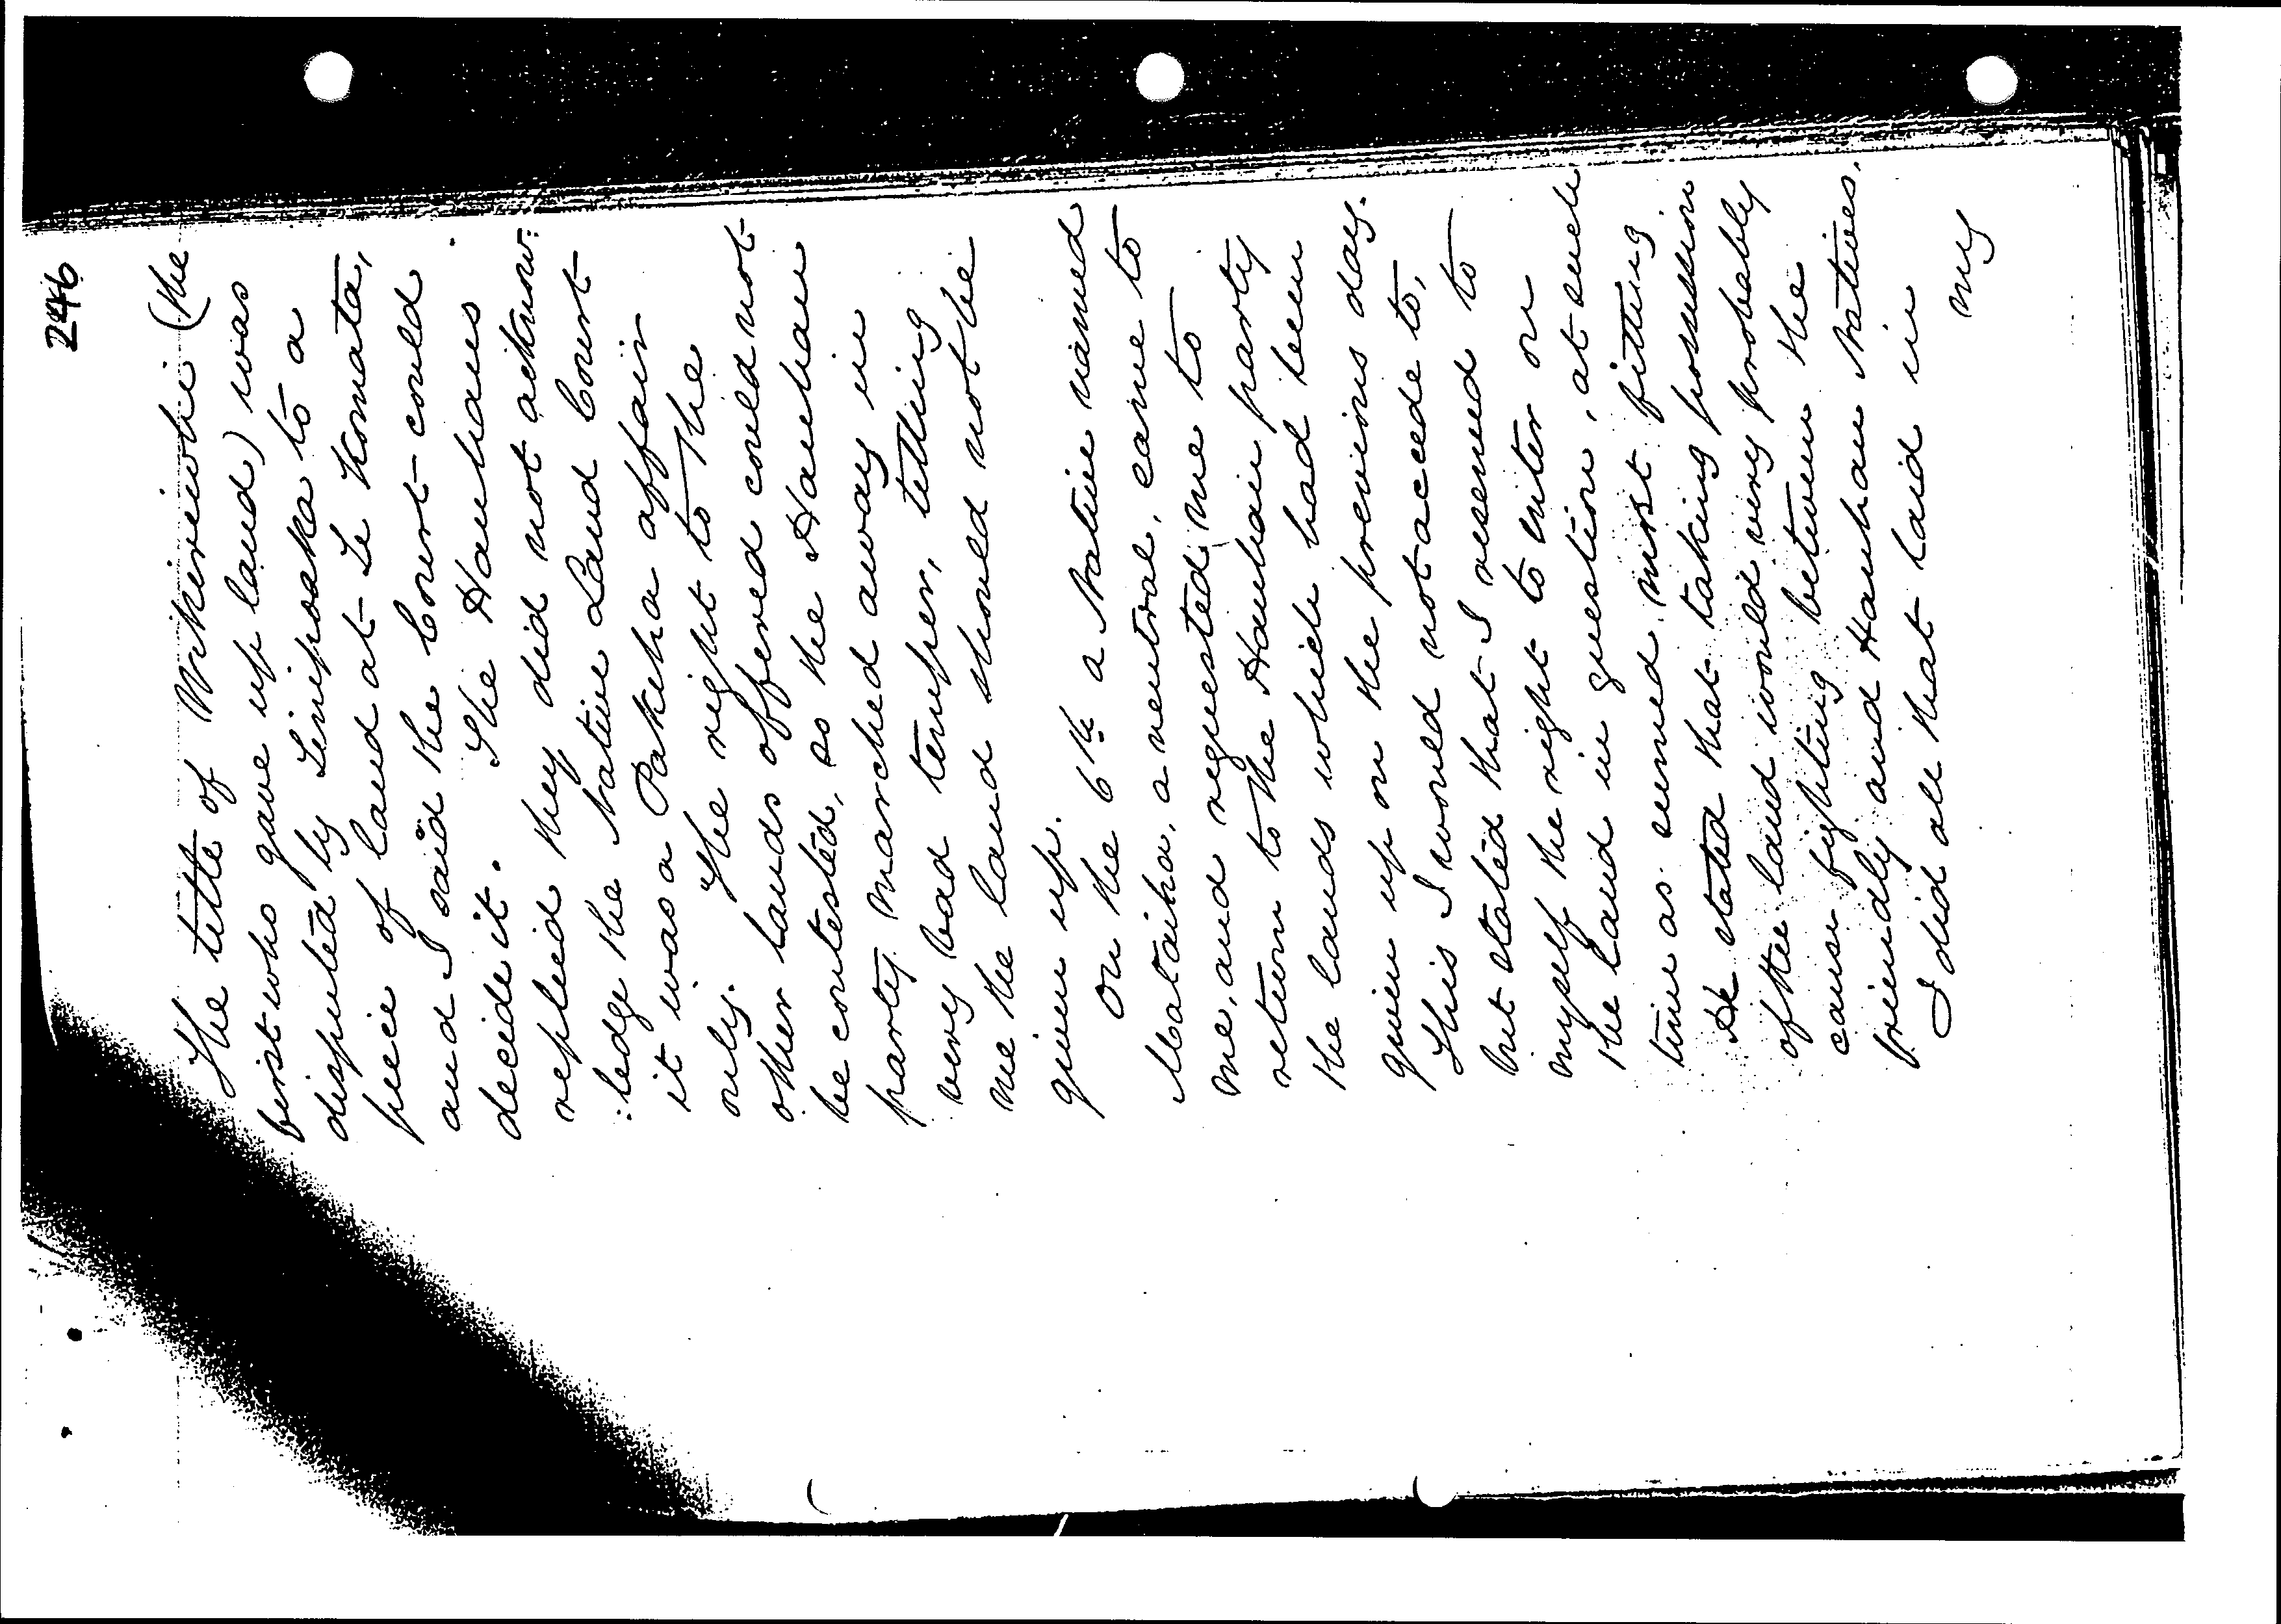 246
The title of Wikiriwhi (the
first who gave up land) was
disputed by Tinipoaka to a
piece of land at Te Komata,
and I said the Court could
decide it. The Hauhaus
replied they did not acknow:
:ledge the Native Land Court
it was a Pakeha affair
only. The right to the
other lands offered could not
be contested, so the Hauhau
party marched away in
very bad temper, telling
me the land should not be
given up.
On the 6th a Native named
Mataiha, a neutral, came to
me, and requested me to
return to the Hauhau party
the lands which had been
given up on the previous day.
This I would not accede to,
but stated that I reserved to
myself the right to enter on
the land in question, at such
time as seemed most fitting.
He stated that taking possession
of the land would very probably
cause fighting between the
friendly and Hauhau Natives.
I did all that laid in
my